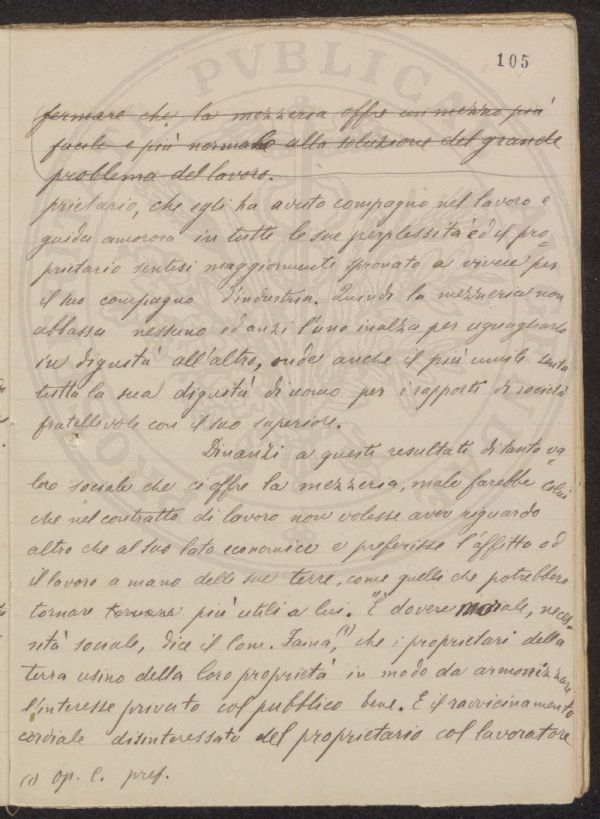 105
fermare che la mezzeria offre un mezzo più
facile e più normale alla soluzione del grande
problema del lavoro.
prietario, che egli ha avuto compagno nel lavoro e
guida amorosa in tutte le sue perplessità ed il pro=
prietario sentesi maggiormente spronato a vivere per
il suo compagno d'industria. Quindi la mezzeria non
abbassa nessuno ed anzi l'uno inalza per uguagliarlo
in dignità all'altro, onde anche il più umile senta
tutta la sua dignità di uomo per i rapporti di società
fratellevole con il suo superiore.
Dinanzi a questi resultati di tanto va=
lore sociale che ci offre la mezzeria, male farebbe colui
che nel contratto di lavoro non volesse aver riguardo
altro che al suo lato economico e preferisse l'affitto od
il lavoro a mano delle sue terre, come quelle che potrebbero
tornare tornare più utili a lui. "È dovere morale, neces=
sità sociale, dice il Com. Faina, (1) che i proprietari della
terra usino della loro proprietà in modo da armonizzare
l'interesse privato col pubblico bene. E il ravvicinamento
cordiale disinteressato del proprietario col lavoratore
(1) Op. C. pref.
PVBLICA